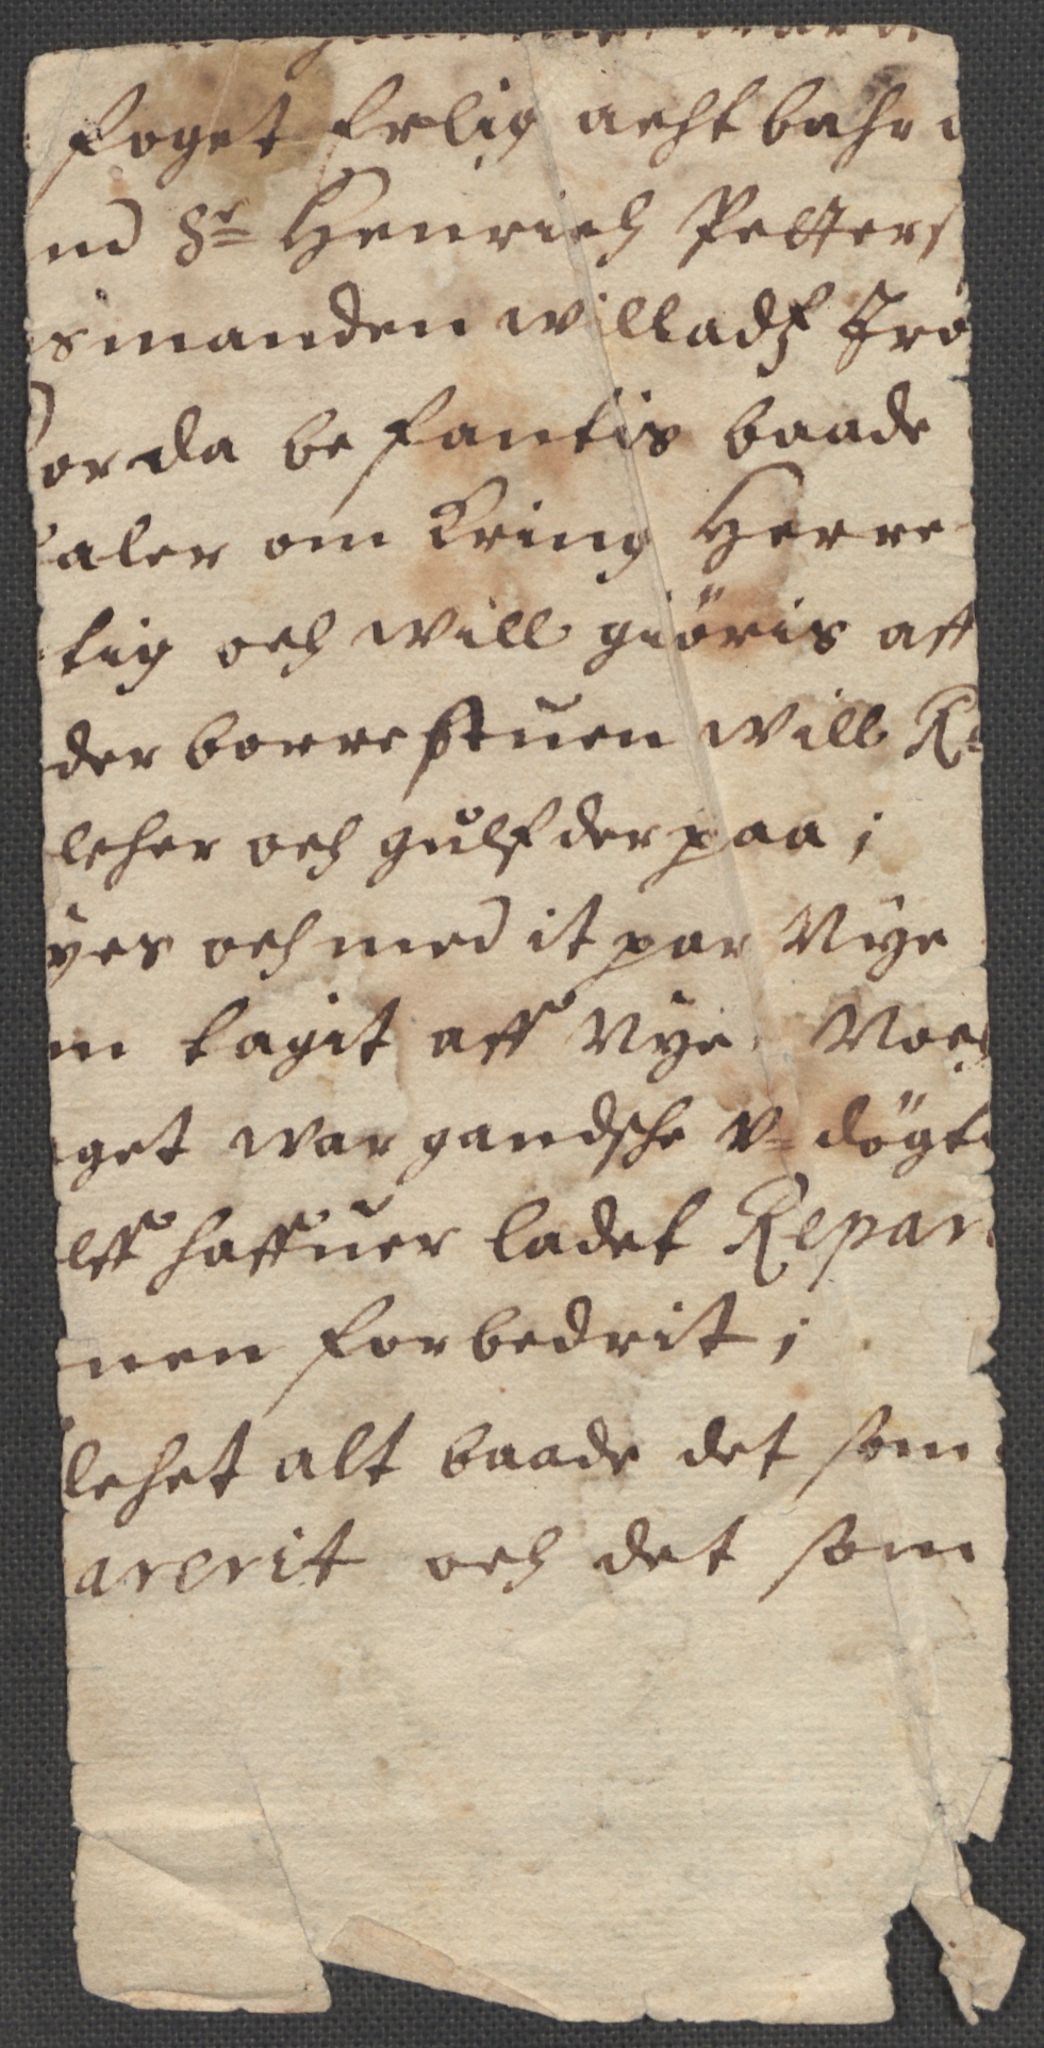 foget Erlig acht bahr
nd Sr= Henrich Petters
smanden Willadß Irö
or da be fantis baade
aler om Kring Herre
tig och Will giöris aff
der borrestuen Will Re
lcher och gulf der paa ;
yes och med it par Nye
m tagit aff Nye. Noe
get war gandsche V= dögt
elff haffuer ladet Repar
nen forbedrit ;
lchet alt baade det som
arerit och det som